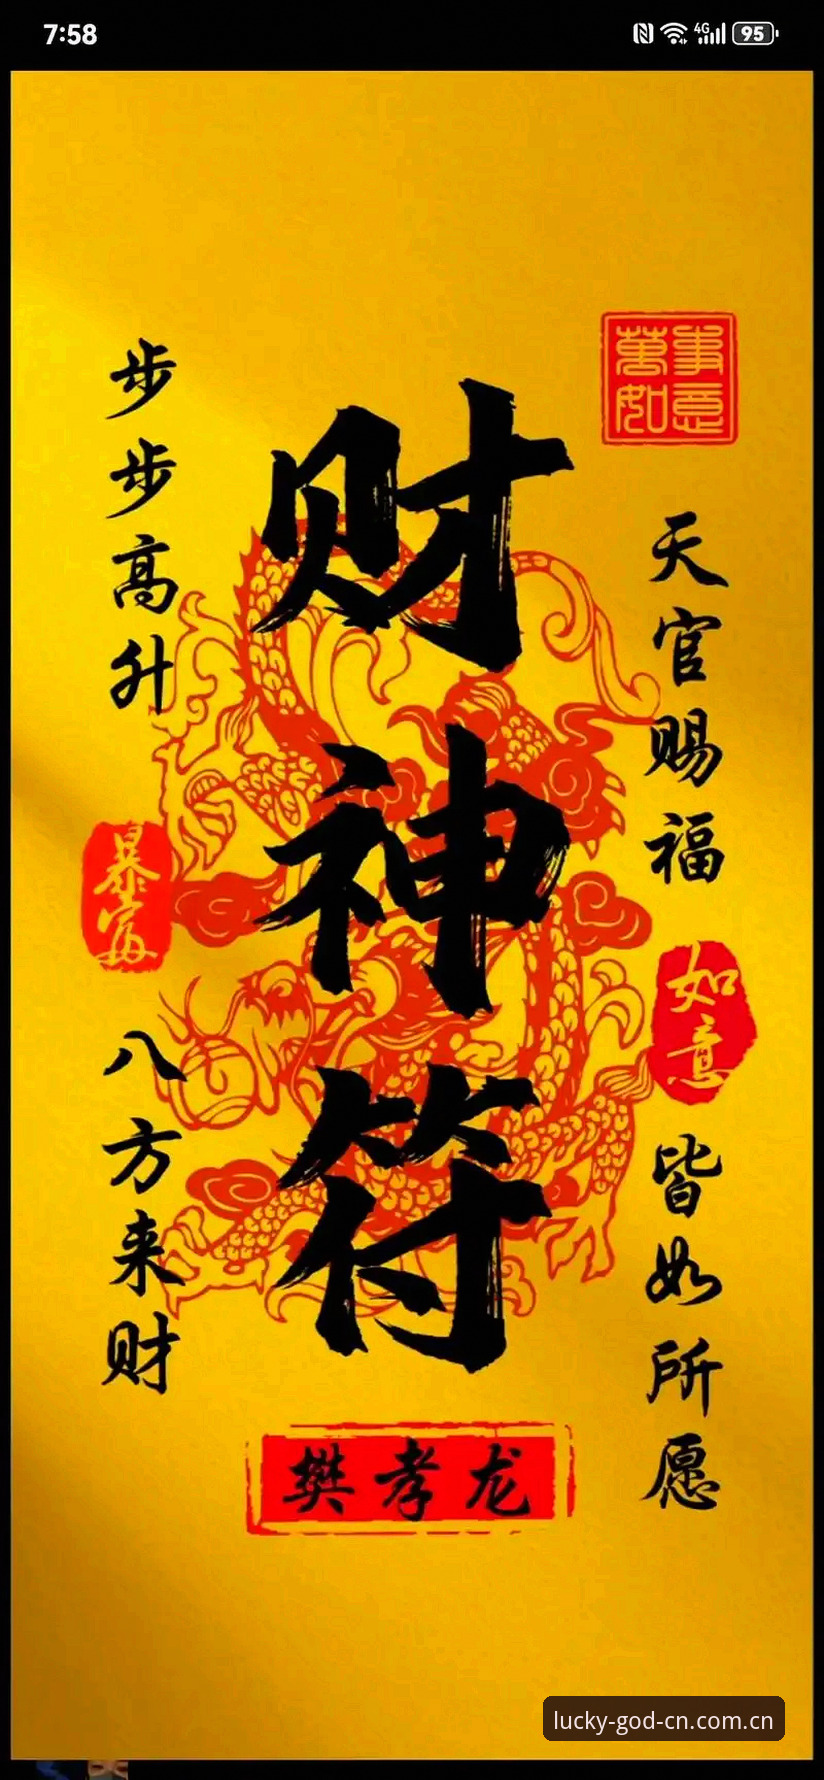 7:58
4G
95
萬事如意
天官赐福
如意
皆如所愿
财神符
步步高升
暴富
八方来财
樊孝龙
lucky-god-cn.com.cn